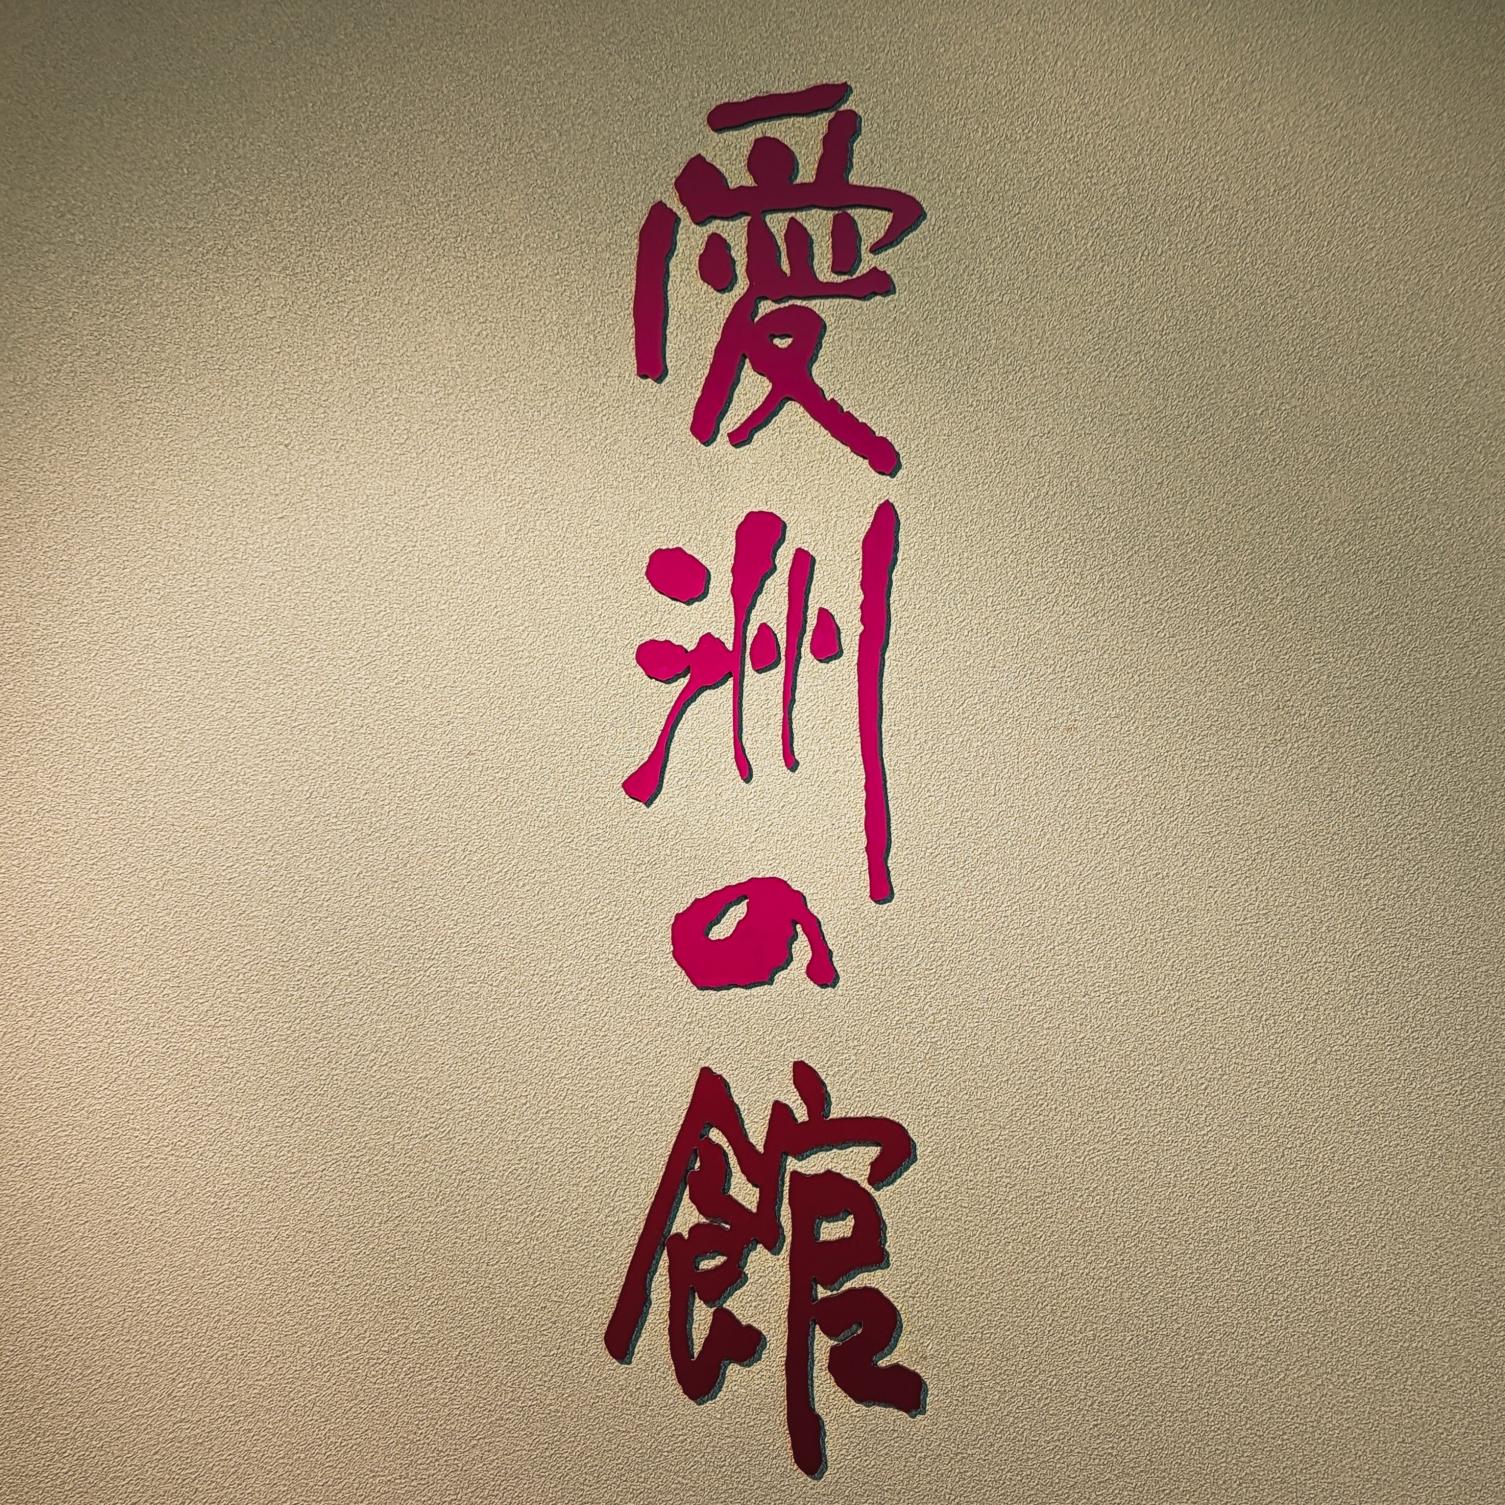 愛洲の館